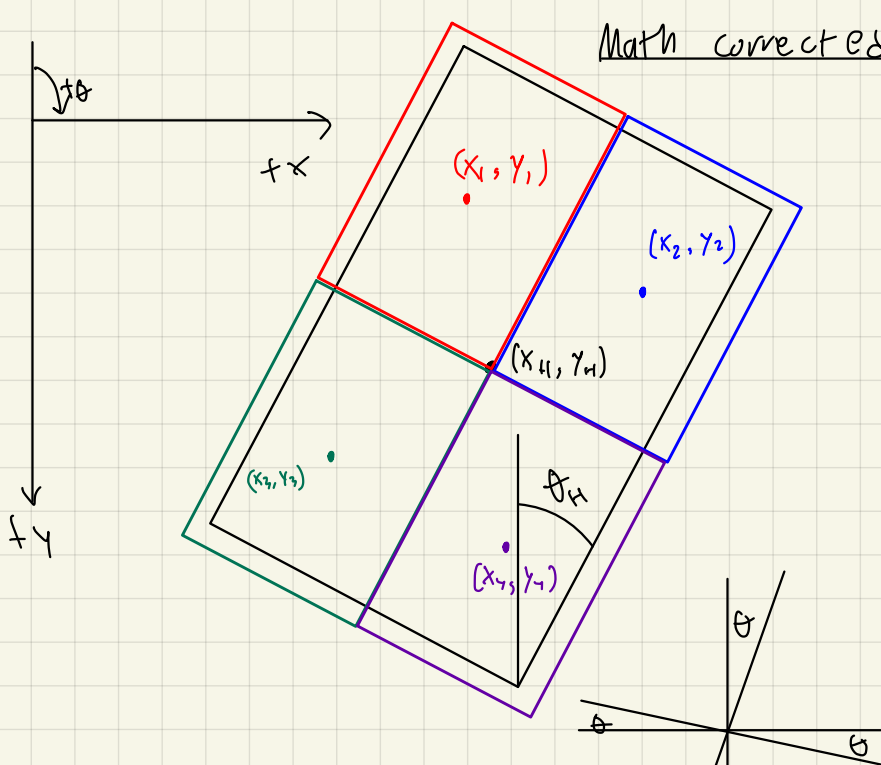 Math corrected
+θ
+x
(x₁, y₁)
(x₂, y₂)
(x_H, y_H)
(x₃, y₃)
θ_H
+y
(x₄, y₄)
θ
θ
θ